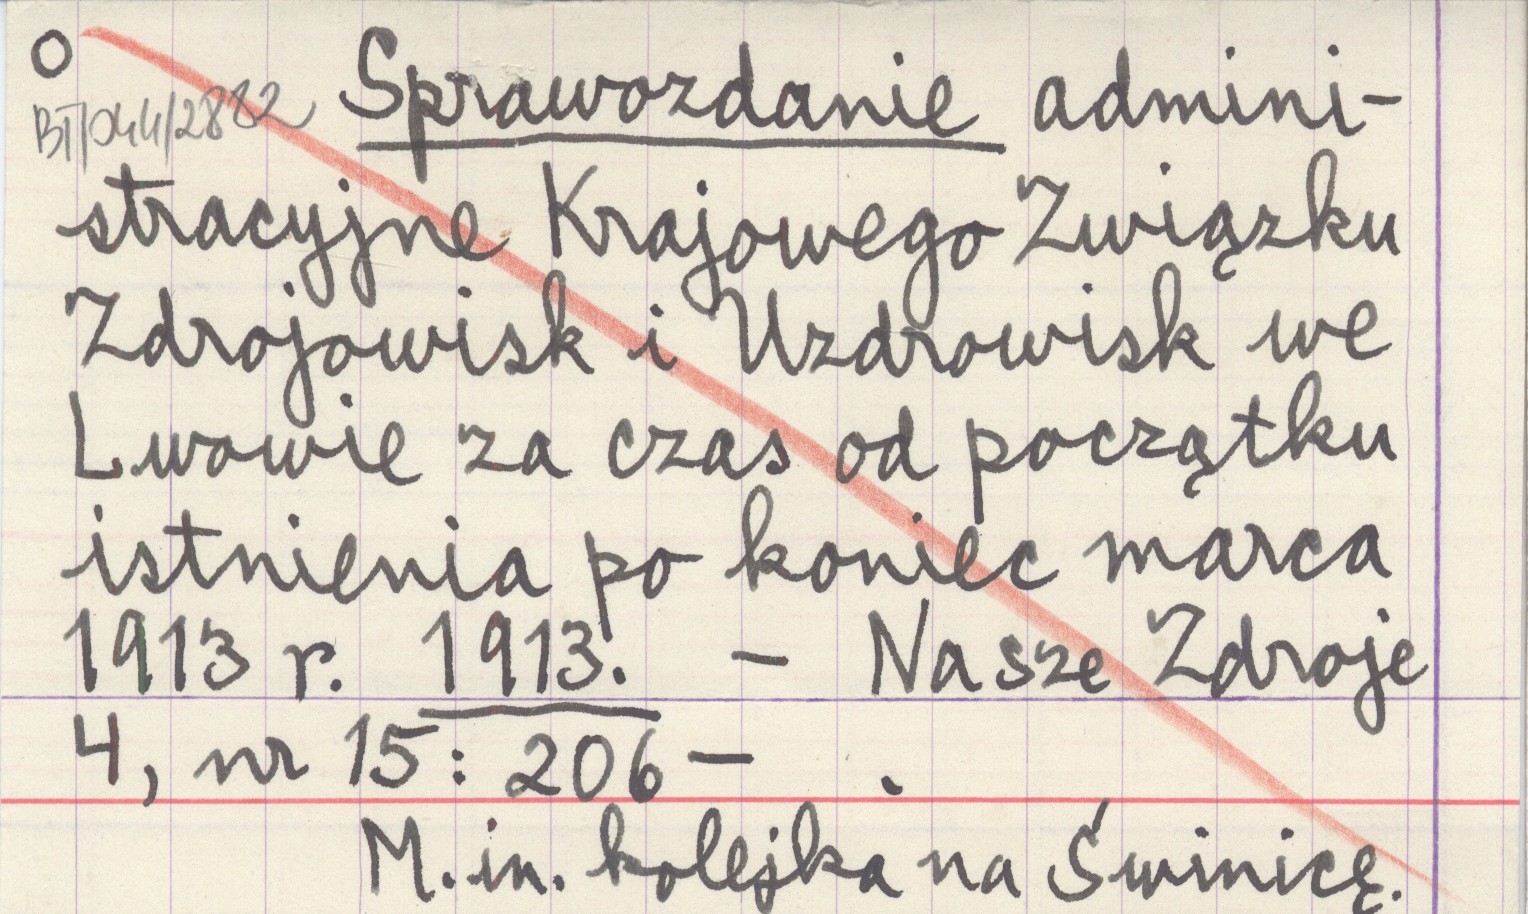 O
BT/044/2882 Sprawozdanie admini-
stracyjne Krajowego Związku
Zdrojowisk i Uzdrowisk we
Lwowie za czas od początku
istnienia po koniec marca
1913 r. 1913. – Nasze Zdroje
4, nr 15: 206 – .
M. in. kolejka na Świnicę.